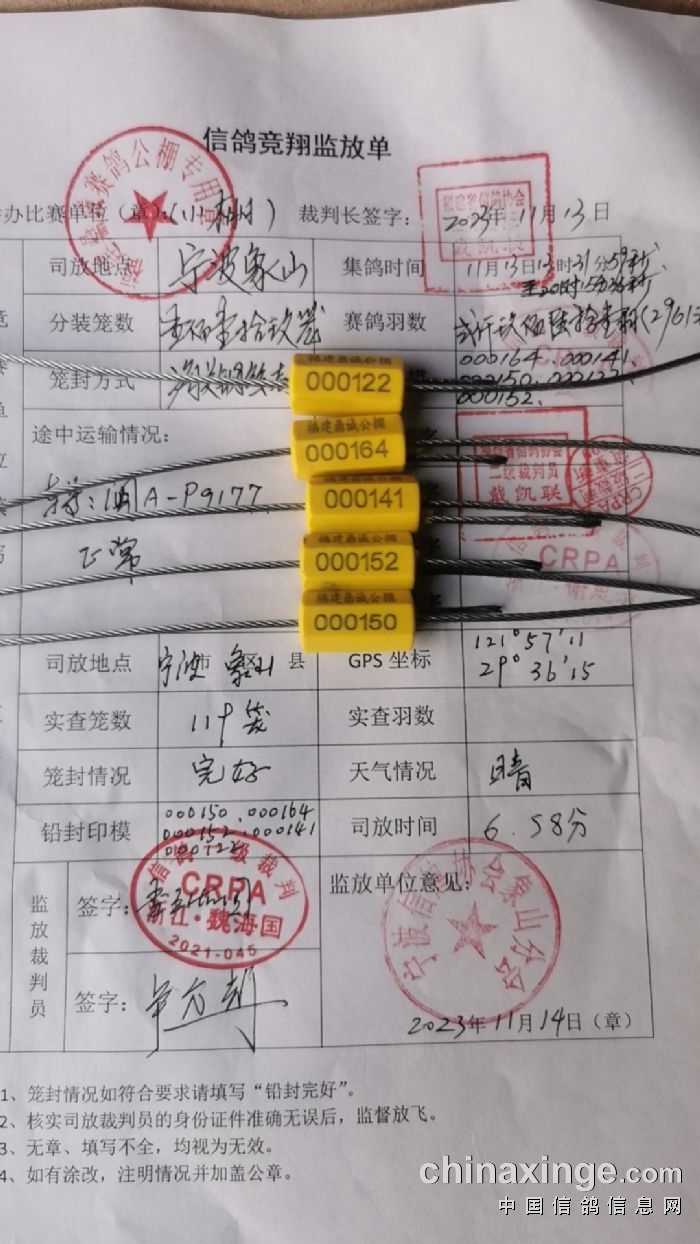 信鸽竞翔监放单
办比赛单位（章）：
裁判长签字：
2023年11月13日
福建省信鸽协会
戴凯联
司放地点
宁波象山
集鸽时间
11月13日13时31分59秒
分装笼数
赛鸽羽数
000164.000141.
笼封方式
000152.
福建鼎诚公棚
000122
福建鼎诚公棚
000164
福建鼎诚公棚
000141
福建鼎诚公棚
000152
福建鼎诚公棚
000150
途中运输情况：
正常
二级裁判员
戴凯联
CRPA
司放地点
宁波市象山县
GPS 坐标
121°57'11
29°36'15
实查笼数
实查羽数
笼封情况
完好
天气情况
晴
铅封印模
000150.000164
000152.000141
000122
司放时间
6.58分
监放裁判员
签字：
信鸽一级裁判
CRPA
浙江·魏海国
2021-045
签字：
监放单位意见：
宁波信鸽协会象山分会
2023年11月14日（章）
1、笼封情况如符合要求请填写“铅封完好”。
2、核实司放裁判员的身份证件准确无误后，监督放飞。
3、无章、填写不全，均视为无效。
4、如有涂改，注明情况并加盖公章。
chinaxinge.com
中国信鸽信息网